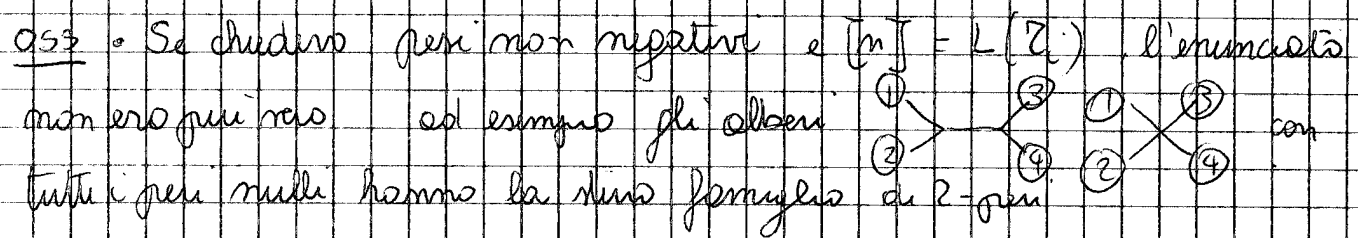 oss • Se chiedevo pesi non negativi e [n] = L(T_i) l'enunciato
① ③ ① ③
non era più vero ad esempio gli alberi con
② ④ ② ④
tutti i pesi nulli hanno la stessa famiglia di 2-pesi